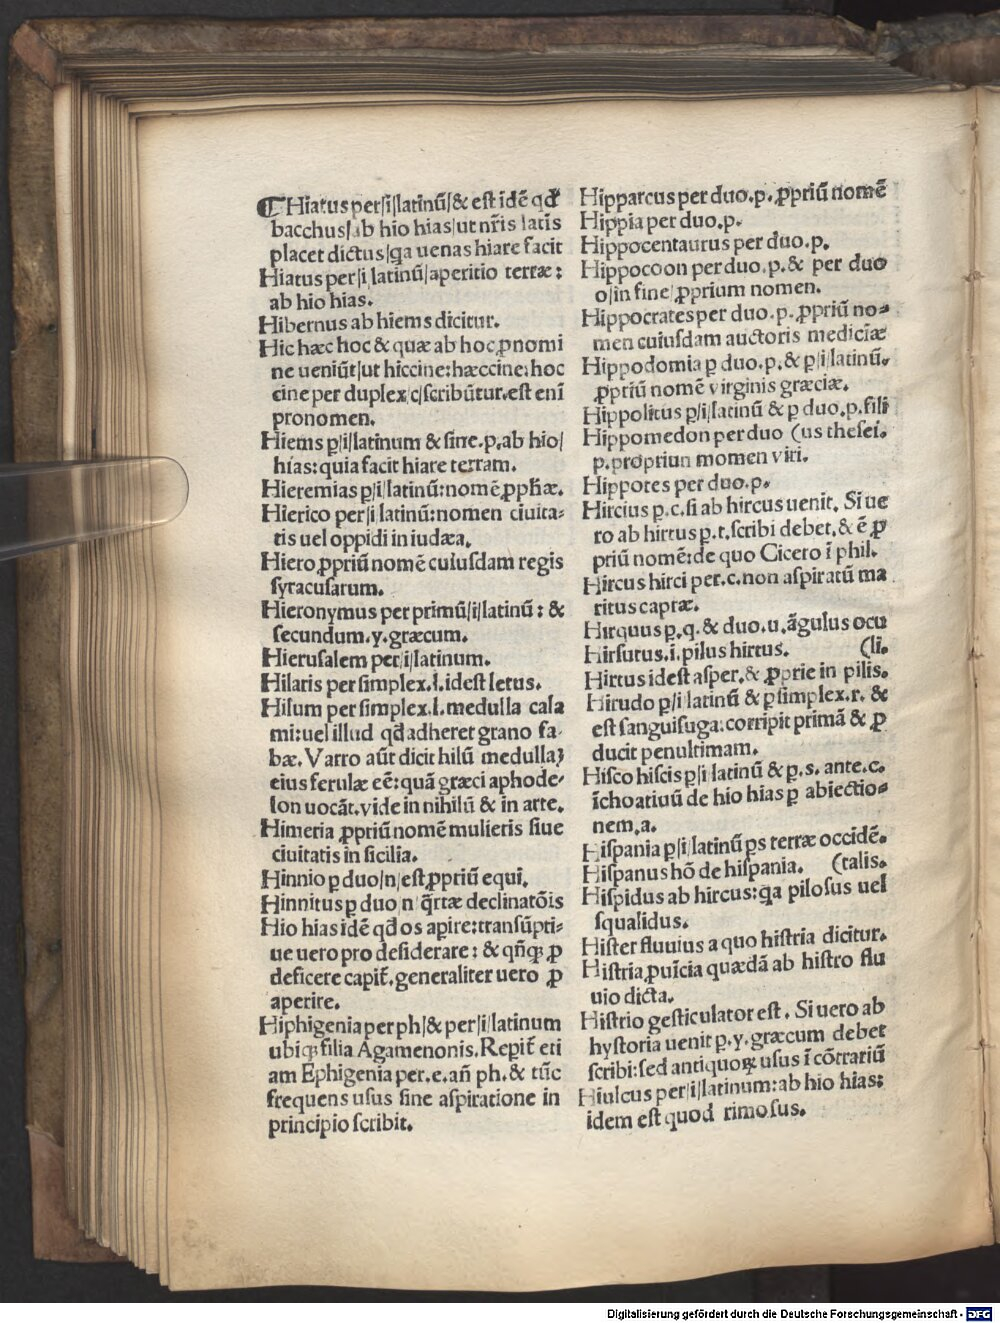 ¶Hiatus per|i|latinū|& est idē qđ
bacchus|ab hio hias|ut nr̄is latīs
placet dictus|q̄a uenas hiare facit
Hiatus per|i|latinū|aperitio terræ:
ab hio hias.
Hibernus ab hiems dicitur.
Hic hæc hoc & quæ ab hoc ꝓnomi
ne ueniūt|ut hiccine:hæccine:hoc
cine per duplex|c|scribūtur.est enī
pronomen.
Hiems ꝑ|i|latinum & sine.p.ab hio|
hias:quia facit hiare terram.
Hieremias ꝑ|i|latinū:nomē ꝓpħæ.
Hierico per|i|latinū:nomen ciuita⸗
tis uel oppidi in iudæa.
Hiero ꝓpriū nomē cuiusdam regis
syracusarum.
Hieronymus per primū|i|latinū: &
secundum.y.græcum.
Hierusalem per|i|latinum.
Hilaris per simplex.l.idest letus.
Hilum per simplex.l.medulla cala
mi:uel illud qđ adheret grano fa⸗
bæ. Varro aūt dicit hilū medullaȝ
eius ferulæ eē:quā græci aphode⸗
lon uocāt.vide in nihilū & in arte.
Himeria ꝓpriū nomē mulieris siue
ciuitatis in sicilia.
Hinnio ꝑ duo|n|est ꝓpriū equi.
Hinnitus ꝑ duo n q̄rtæ declinatōis
Hio hias idē qđ os aꝑire:transūpti⸗
ue uero pro desiderare: & qñqꝫ ꝓ
deficere capit̄.generaliter uero ꝓ
aperire.
Hiphigenia per ph|& per|i|latinum
ubiqꝫ filia Agamenonis. Reꝑit̄ eti
am Ephigenia per.e.añ ph.& tūc
frequens usus sine aspiratione in
principio scribit.
Hipparcus per duo.p.ꝓpriū nomē
Hippia per duo.p.
Hippocentaurus per duo.p.
Hippocoon per duo.p.& per duo
o|in fine|ꝓprium nomen.
Hippocrates per duo.p.ꝓpriū no⸗
men cuiusdam auctoris mediciæ
Hippodomia ꝑ duo.p.& ꝑ|i|latinū.
ꝓpriū nomē virginis græciæ.
Hippolitus ꝑ|i|latinū & ꝑ duo.p.fili
Hippomedon per duo (us thesei.
p.proprium momen viri.
Hippotes per duo.p.
Hircius ꝑ.c.si ab hircus uenit. Si ue
ro ab hirtus ꝑ.t.scribi debet.& ē ꝓ
priū nomē:de quo Cicero ī phil.
Hircus hirci per.c.non aspiratū ma
ritus capræ.
Hirquus ꝑ.q.& duo.u.āgulus ocu
Hirsutus.i.pilus hirtus. (li.
Hirtus idest asper.& ꝓprie in pilis.
Hirudo ꝑ|i|latinū & ꝑ simplex.r. &
est sanguisuga:corripit primā & ꝓ
ducit penultimam.
Hisco hiscis ꝑ|i|latinū & ꝑ.s. ante.c.
īchoatiuū de hio hias ꝑ abiectio⸗
nem.a.
Hispania ꝑ|i|latinū ꝑs terræ occidē.
Hispanus hō de hispania. (talis.
Hispidus ab hircus:q̄a pilosus uel
squalidus.
Hister fluuius a quo histria dicitur.
Histria ꝓuīcia quædā ab histro flu
uio dicta.
Histrio gesticulator est. Si uero ab
hystoria uenit ꝑ.y.græcum debet
scribi:sed antiquoꝝ usus ī cōtrariū
Hiulcus per|i|latinum:ab hio hias:
idem est quod rimosus.
Digitalisierung gefördert durch die Deutsche Forschungsgemeinschaft - DFG